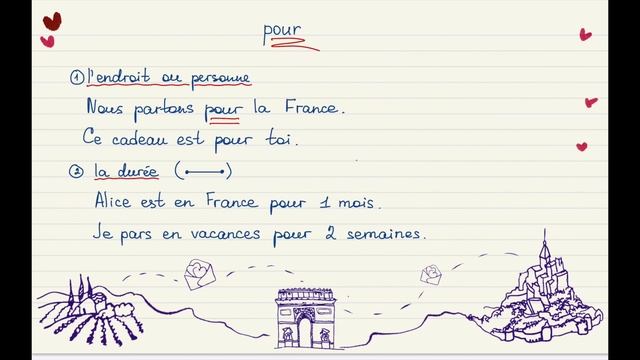 pour
① l'endroit ou personne
Nous partons pour la France.
Ce cadeau est pour toi.
② la durée ( )
Alice est en France pour 1 mois.
Je pars en vacances pour 2 semaines.